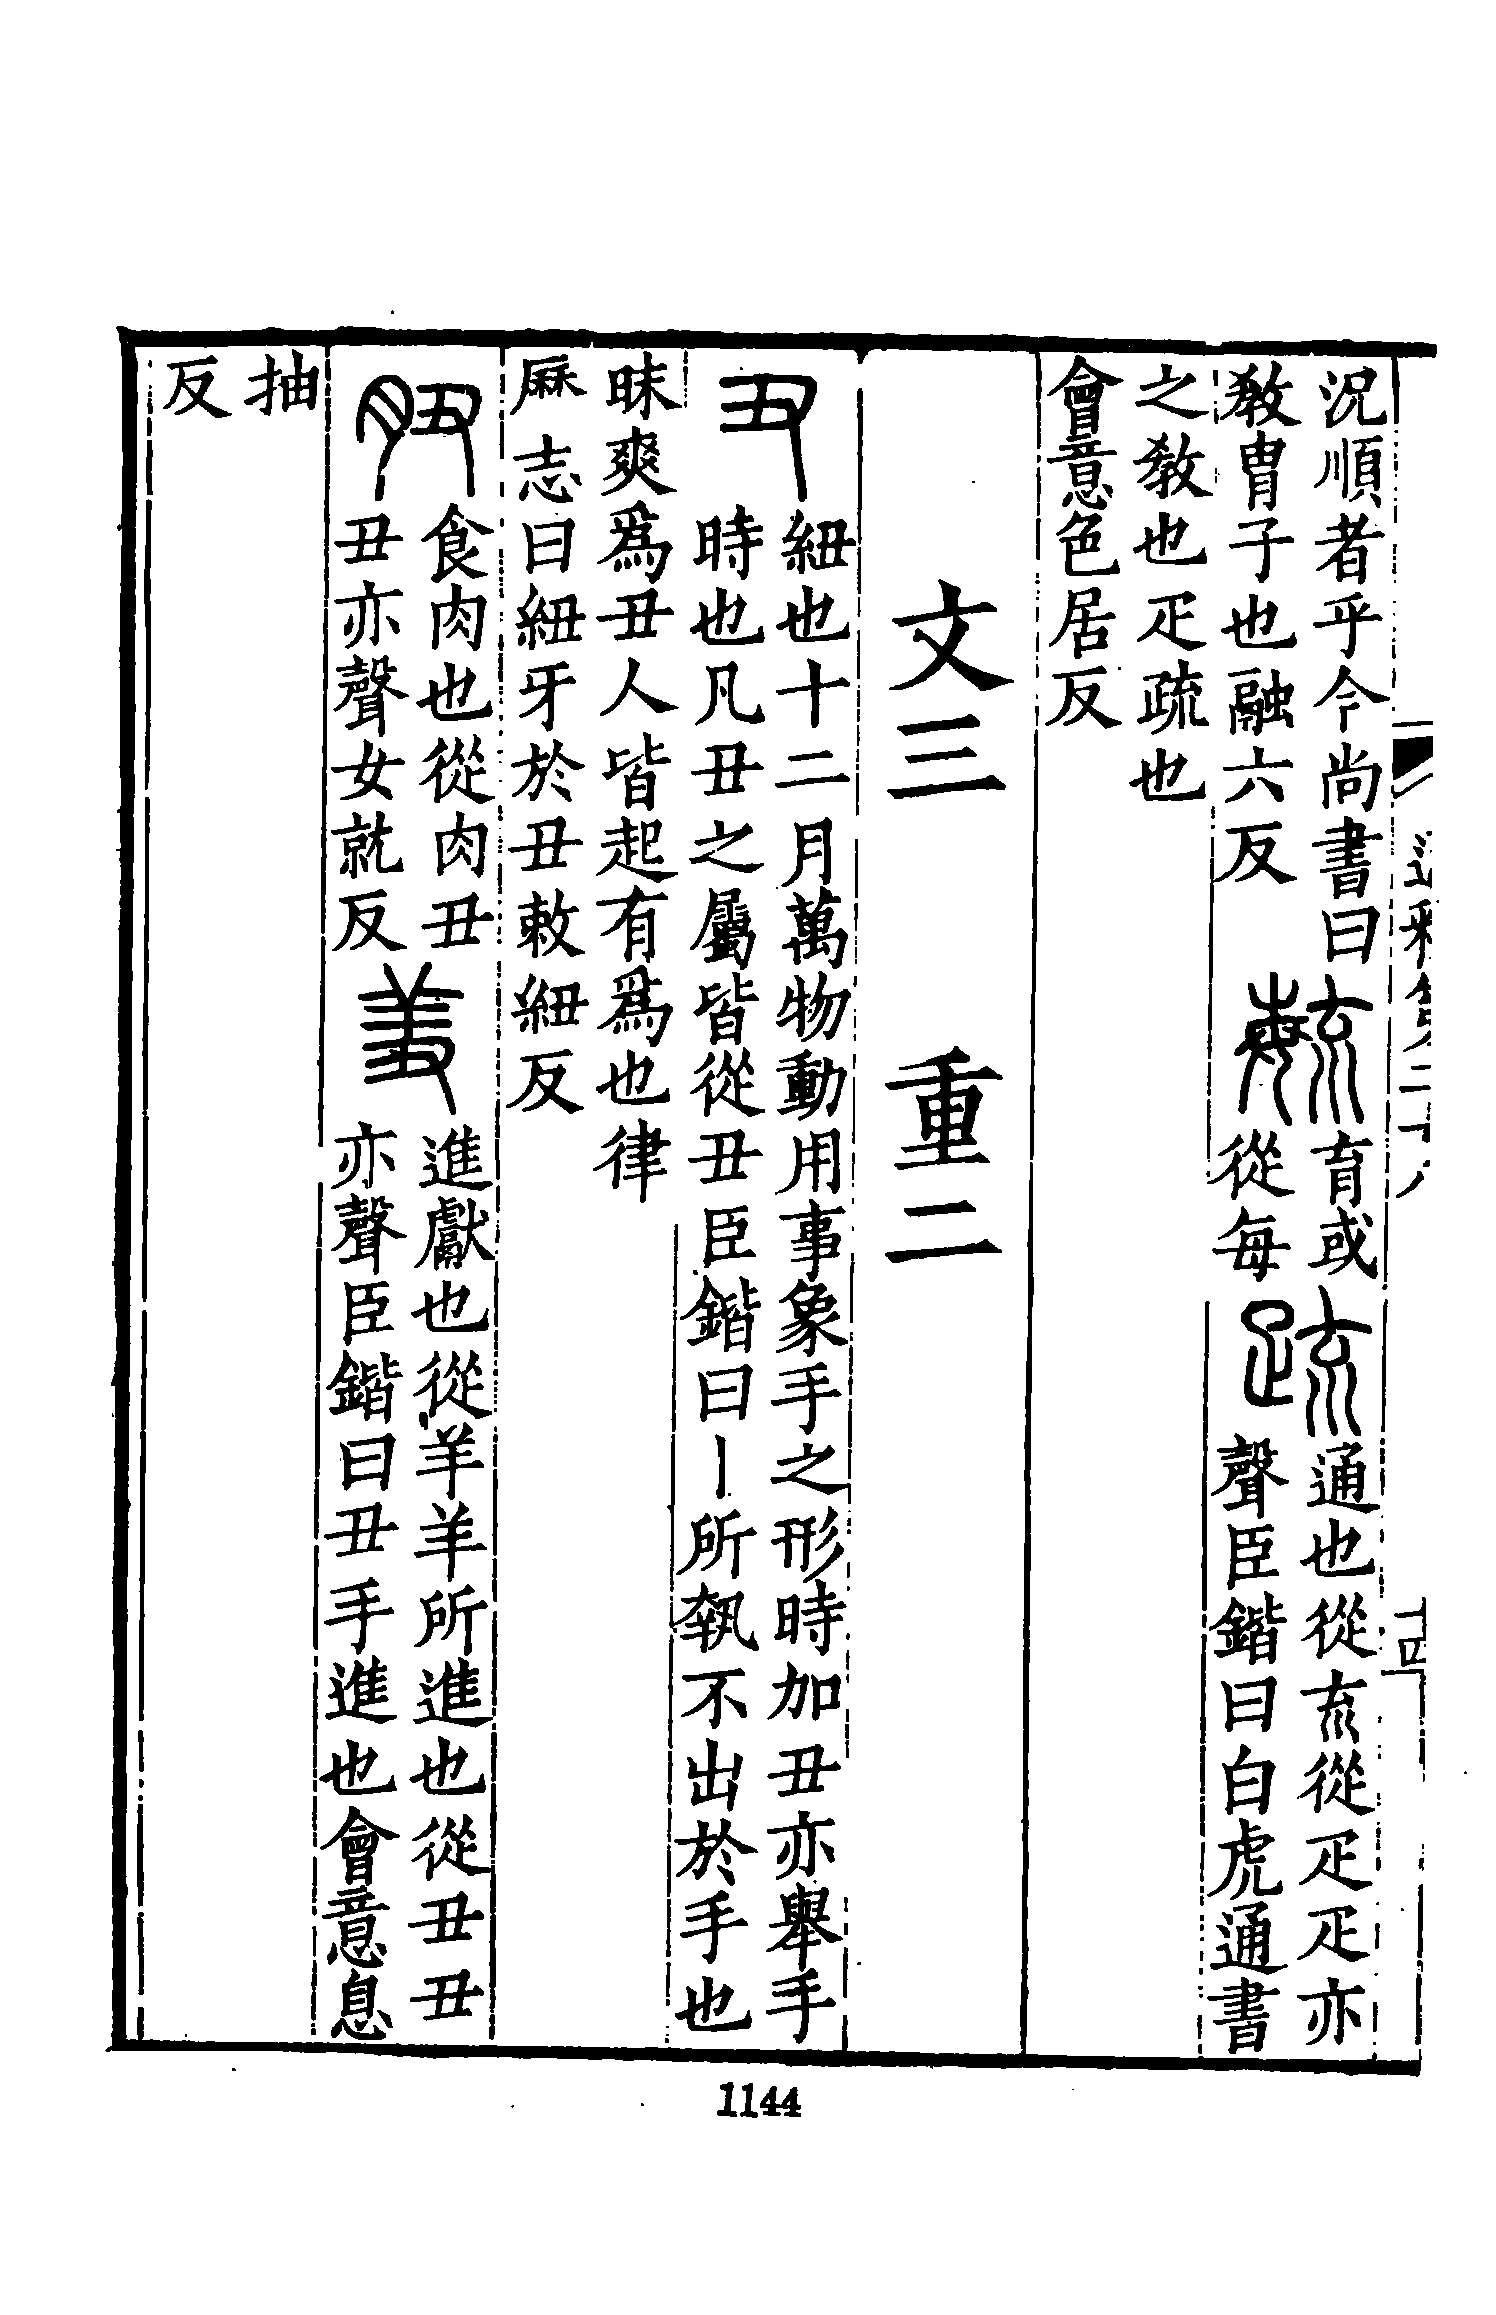 通釋第二十八
十四
況順者乎今尚書曰
敎胄子也融六反
毓
育或
從每
疏
通也從㐬從疋疋亦
聲臣鍇曰白虎通書
之敎也疋疏也
會意色居反
文三 重二
丑
紐也十二月萬物動用事象手之形時加丑亦舉手
時也凡丑之屬皆從丑臣鍇曰丨所執不出於手也
昧爽爲丑人皆起有爲也律
厤志曰紐牙於丑敕紐反
䏔
食肉也從肉丑
丑亦聲女就反
羞
進獻也從羊羊所進也從丑丑
亦聲臣鍇曰丑手進也會意息
抽
反
1144